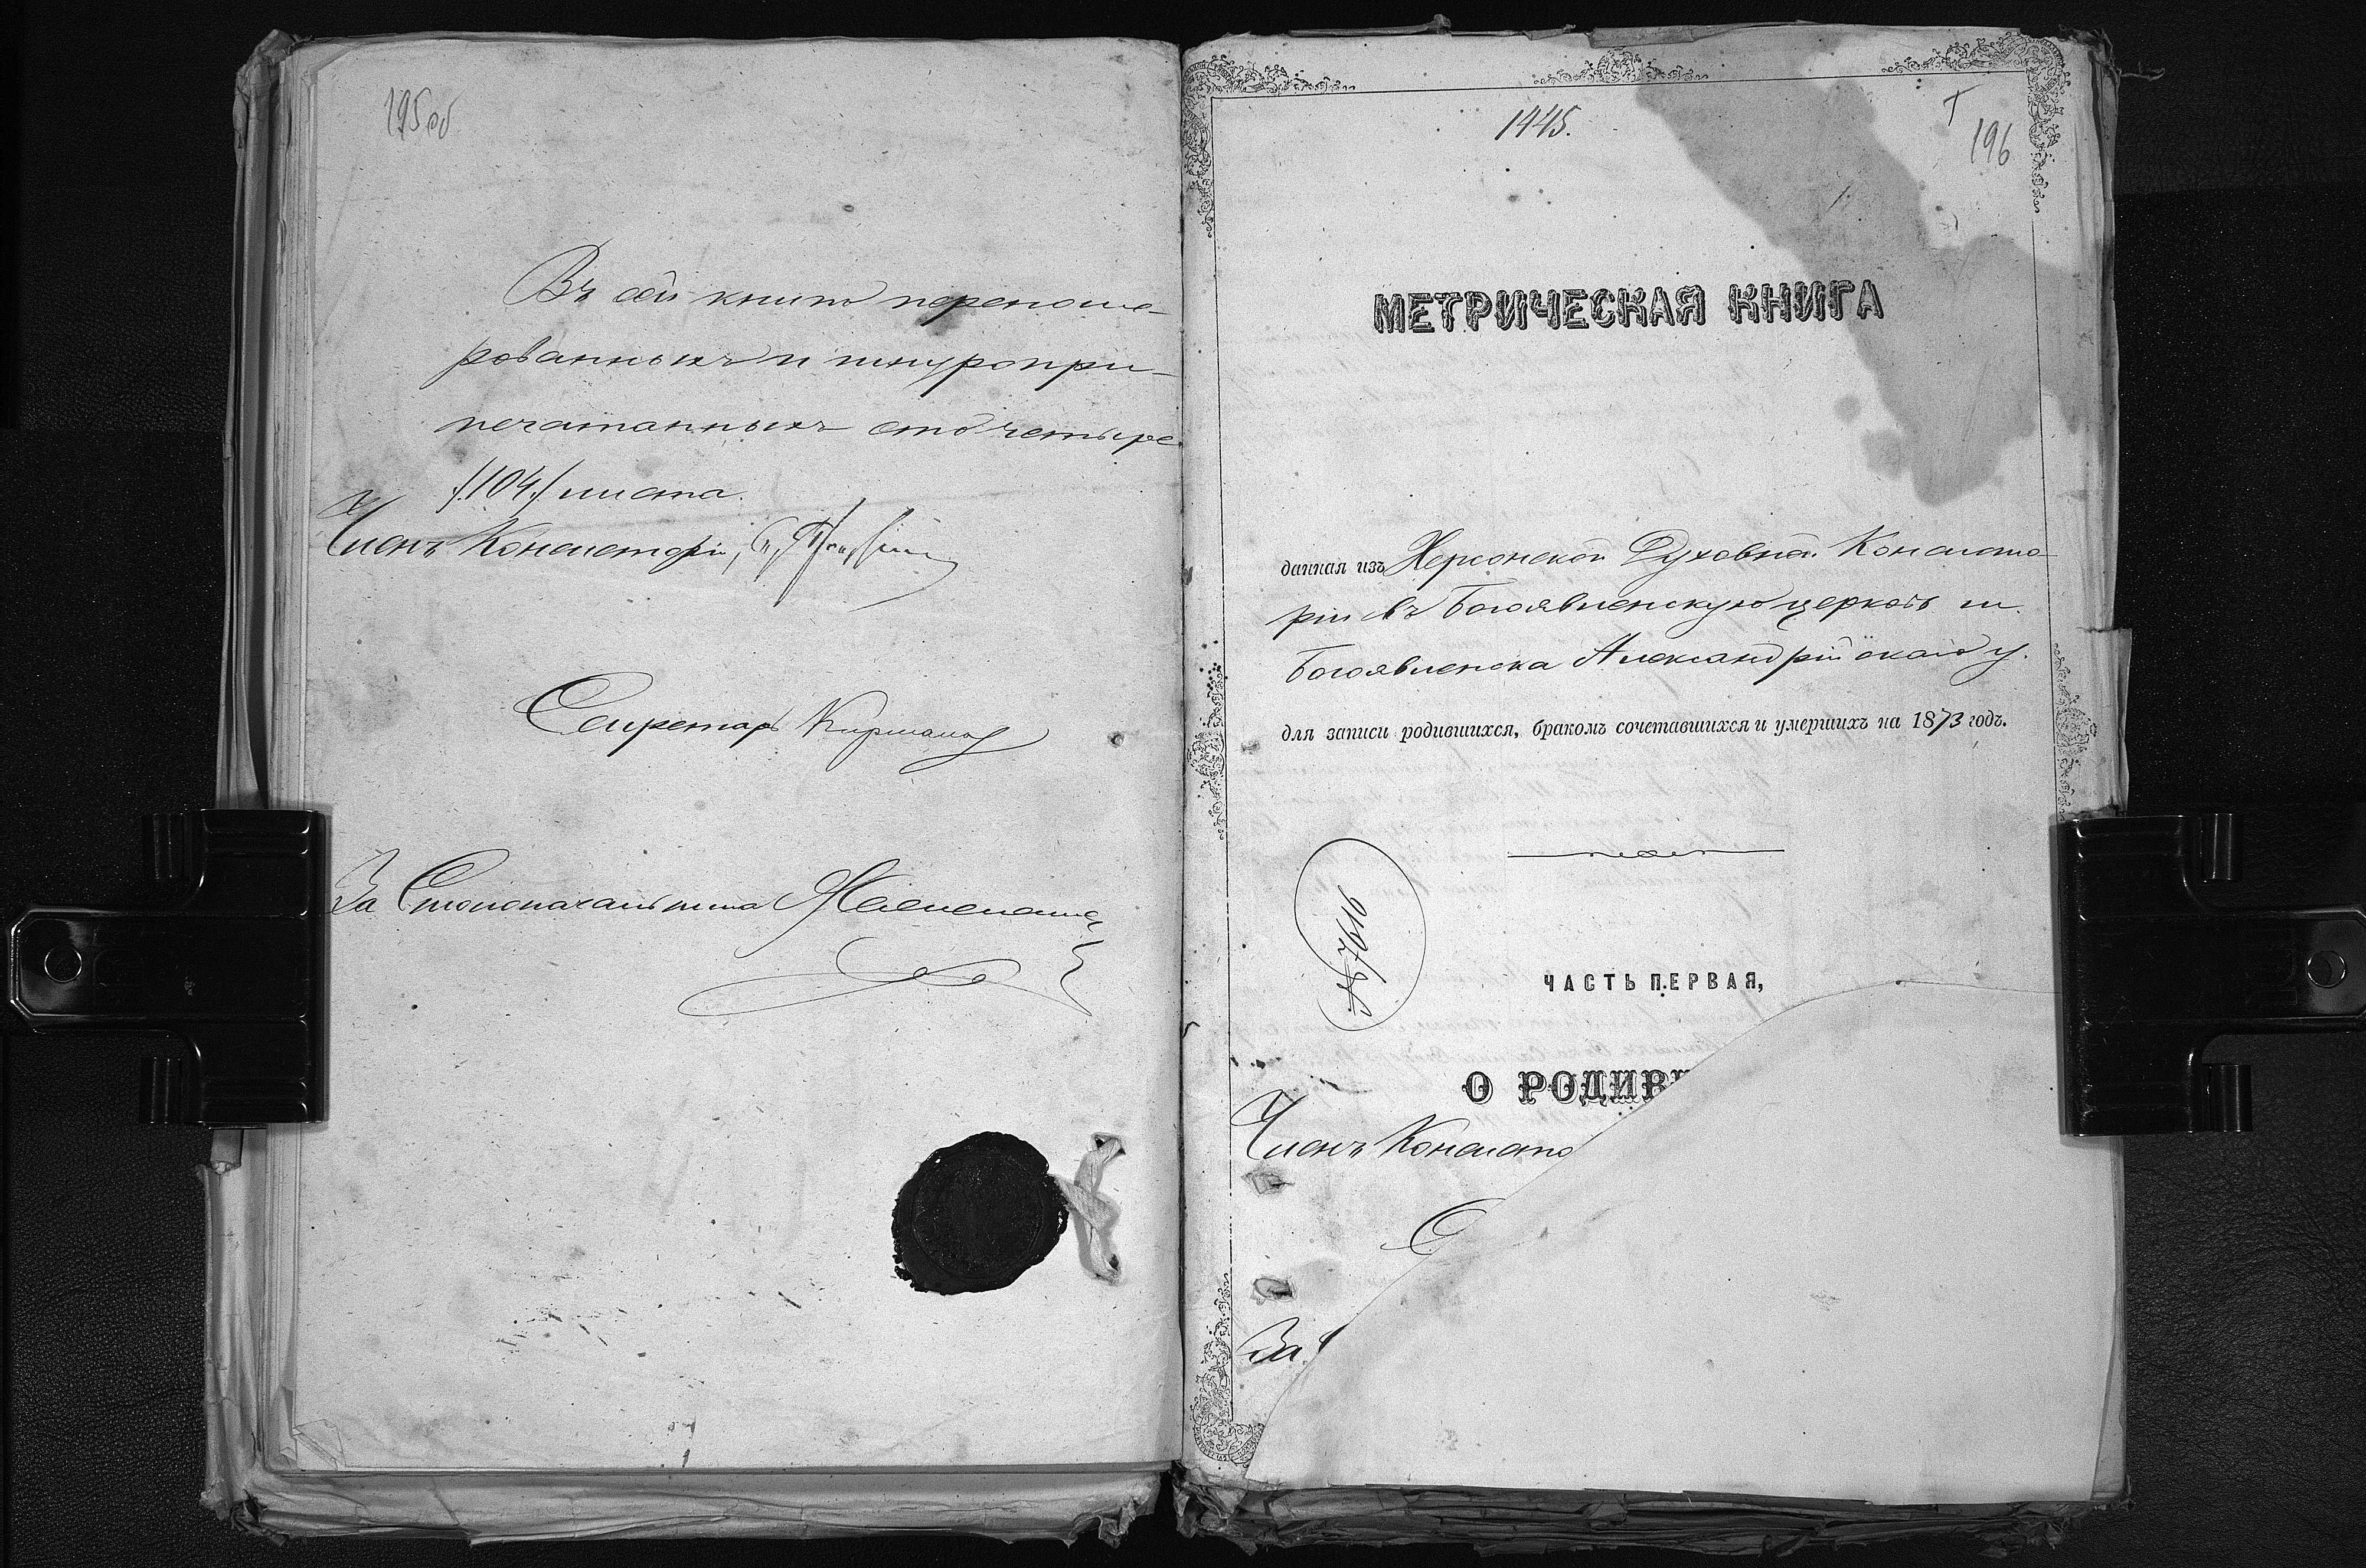 195об
Въ сей книге перенуме-
рованныхъ и шнуропри-
печатанныхъ сто четыре
/104/ листа.
Членъ Консисторіи,
Секретарь
За Столоначальника
1445.
196
МЕТРИЧЕСКАЯ КНИГА
данная изъ Херсонской Духовной Консисто-
ріи въ Богоявленскую церковь м.
Богоявленска Александрійскаго у.
для записи родившихся, бракомъ сочетавшихся и умершихъ на 1873 годъ.
№ 7616
ЧАСТЬ ПЕРВАЯ,
О РОДИВ
Членъ Консисто
С
За